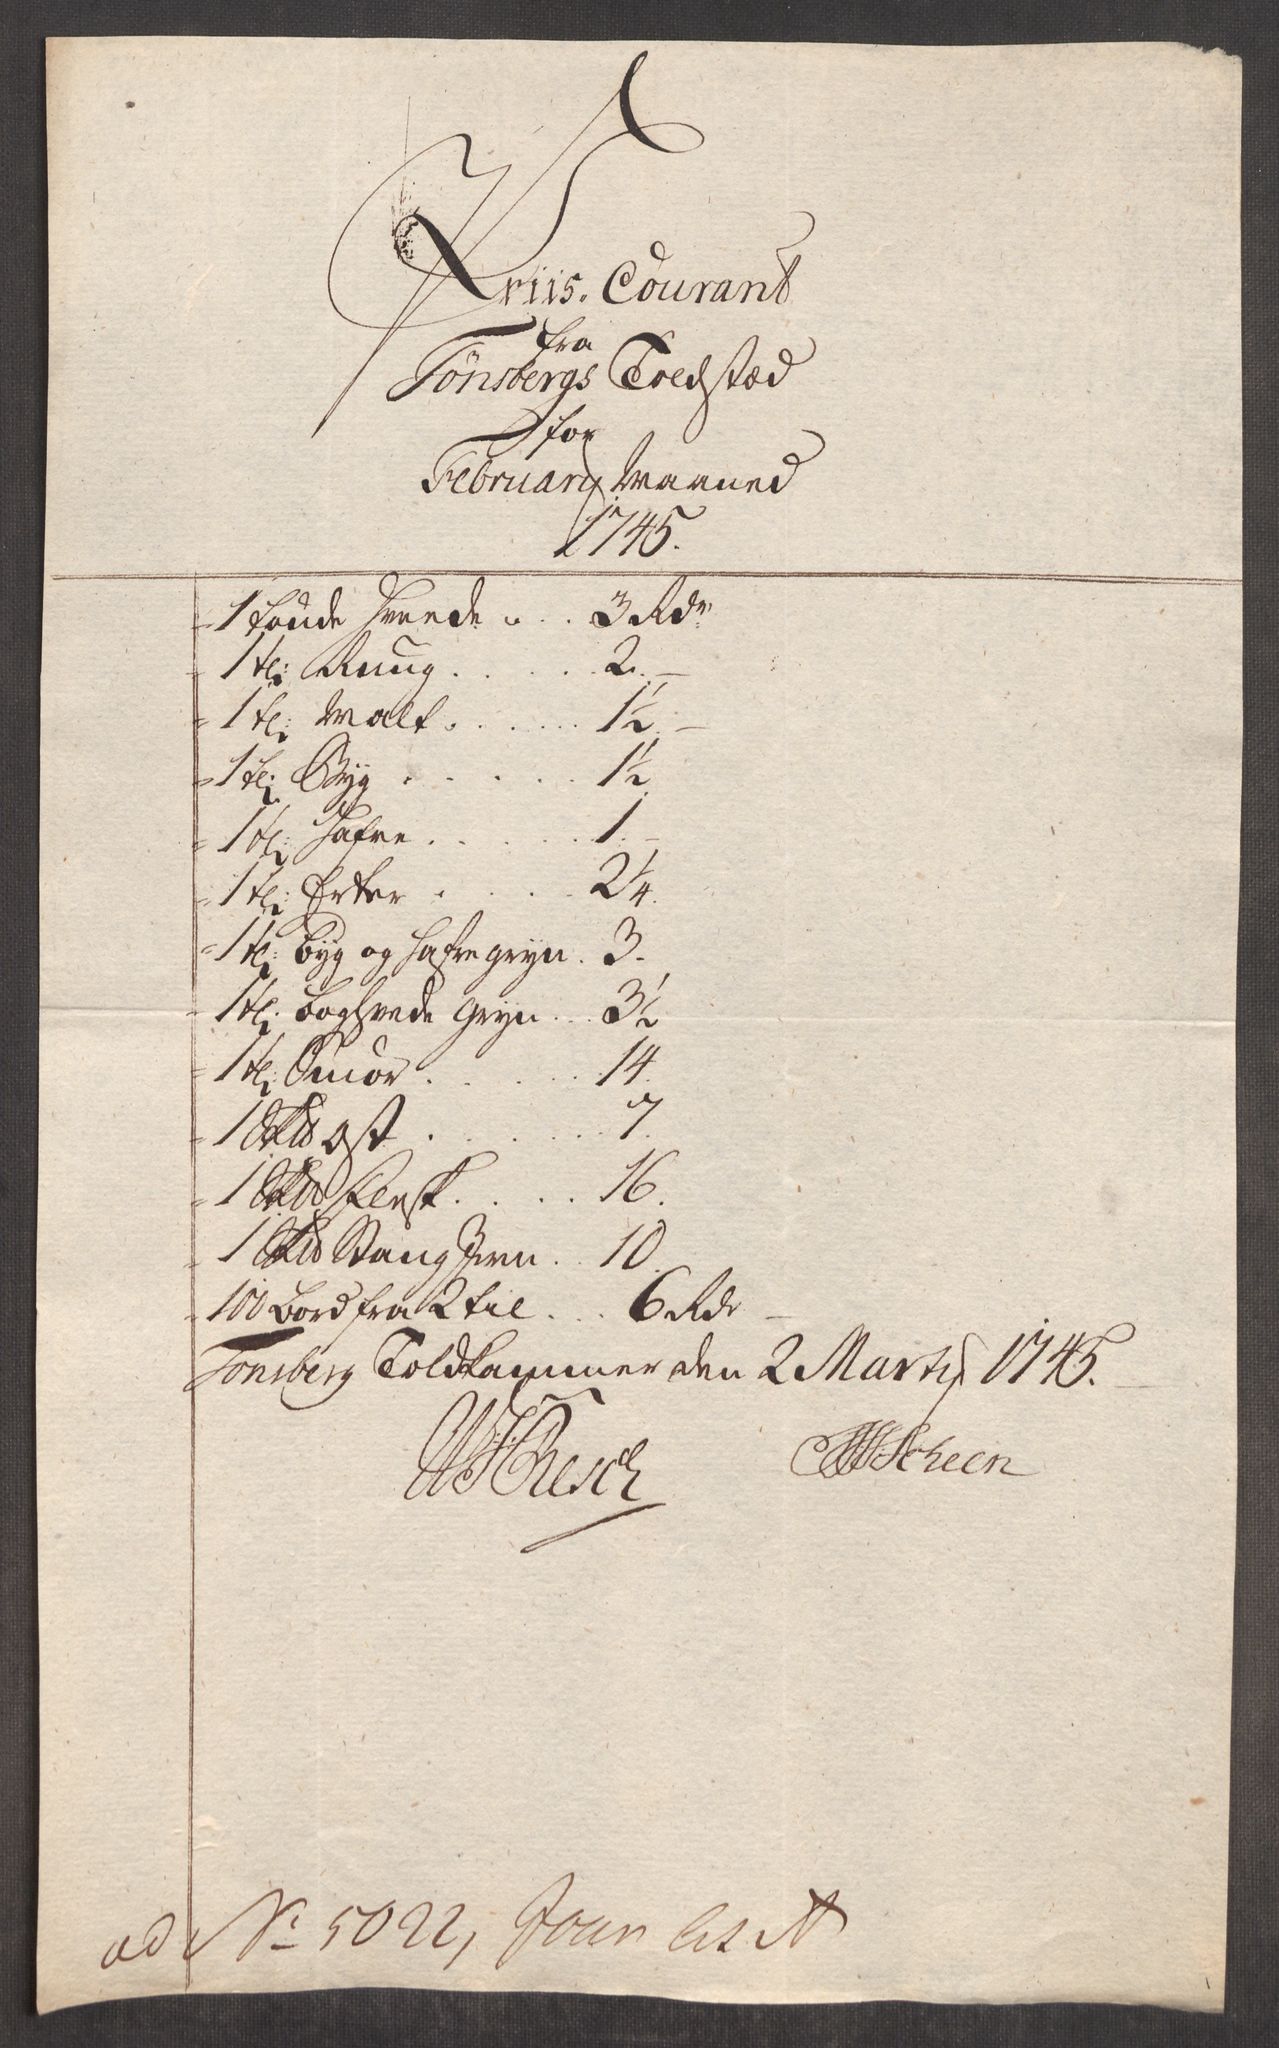 Priis. Courant
fra
Tönsbergs Toldstæd
for
Februarij Maaned
1745.
1 tønde Hveede . . . 3 Rdr
1 tl: Ruug . . . . . 2. —
1 tl: Malt . . . . . 1½. —
1 tl: Byg . . . . . 1½
1 tl: Hafre . . . . . 1. —
1 tl: Erter . . . . 2¼.
1 tl: byg og hafre gryn . 3.
1 tl: boghvede gryn . . . 3½
1 tl: Smör . . . . . 14.
1 Skd ost . . . . . . 7.
1 Skd flesk . . . . 16.
1 Skd Stang Jern . . 10.
100 bord fra 2 til . . . 6 Rdr —
Tonsberg Toldkammer den 2 Martij 1745.
Resch Scheen
ad No 5022, Jour